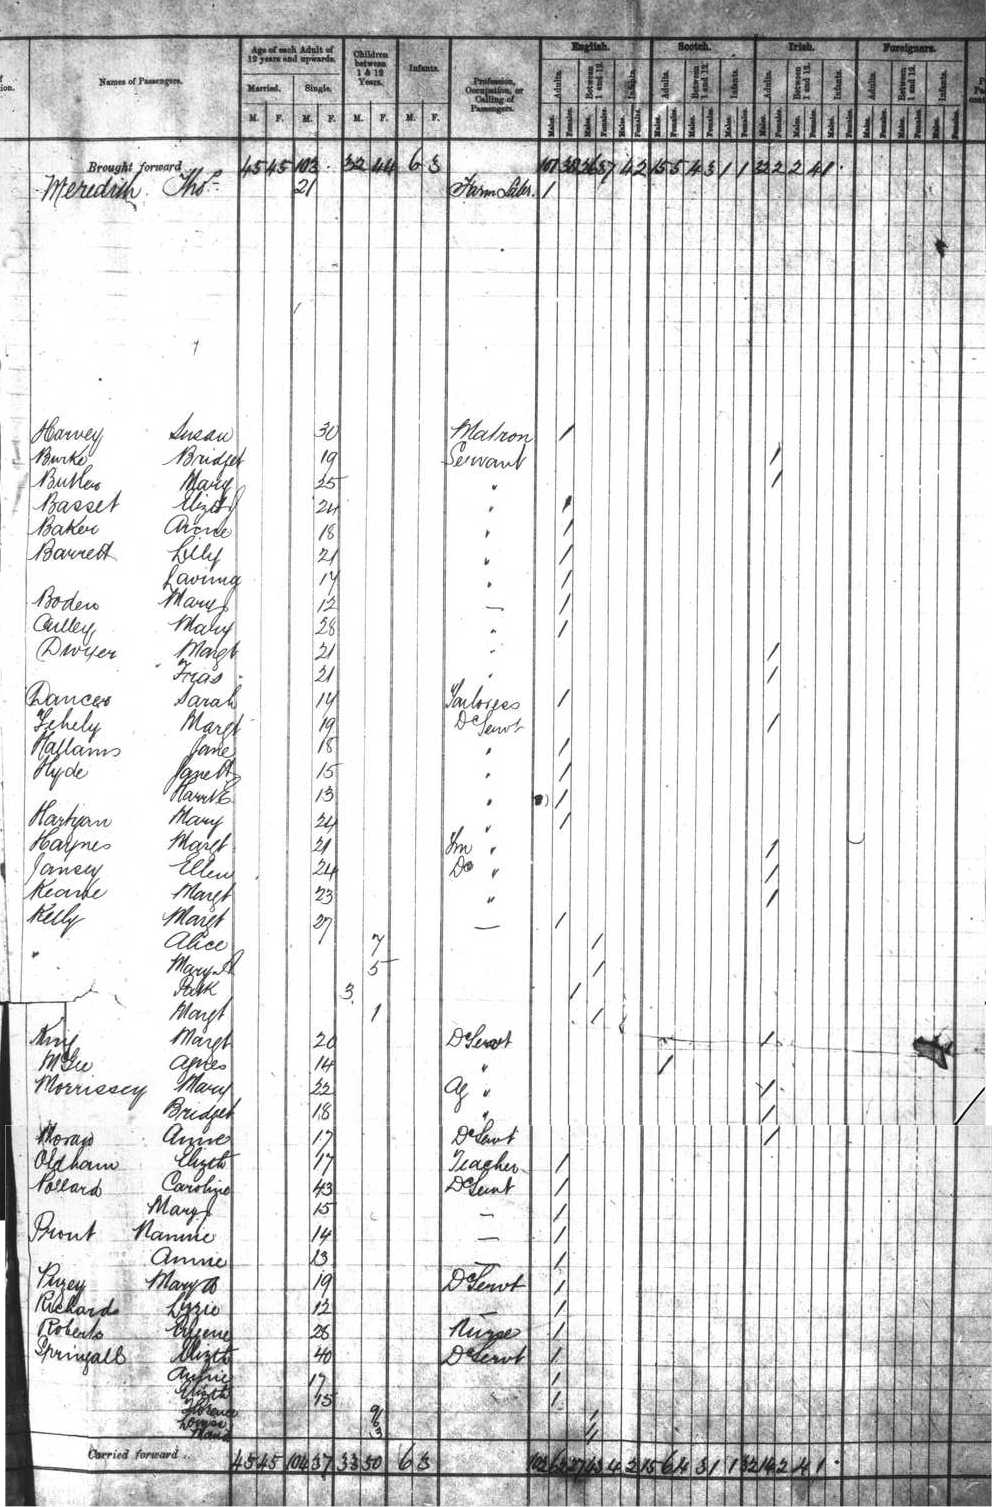 Names of Passengers.
Age of each Adult of 12 years and upwards.
Married. Single.
M. F. M. F.
Children between 1 & 12 Years.
M. F.
Infants.
M. F.
Profession, Occupation, or Calling of Passengers.
English. Scotch. Irish. Foreigners.
Adults. Between 1 and 12. Infants. Adults. Between 1 and 12. Infants. Adults. Between 1 and 12. Infants. Adults. Between 1 and 12. Infants.
Males. Females. Males. Females. Males. Females. Males. Females. Males. Females. Males. Females. Males. Females. Males. Females. Males. Females. Males. Females. Males. Females. Males. Females.
Brought forward 45 45 103 32 44 6 3 4 2 15 5 4 3 1 1 32 2 2 4 1
Meredith Thos 21 Farm Labr. 1
Harvey Susan 30 Matron 1
Burke Bridget 19 Servant 1
Butler Mary 25 " 1
Basset Elizth 24 " 1
Baker Annie 18 " 1
Barrett Lilly 21 " 1
Lavinia 17 " 1
Boden Mary 12 — 1
Culley Mary 28 " 1
Dwyer Margt 21 " 1
21 " 1
Dancer Sarah 14 Tailoress 1
Fehely Margt 19 Dc Servt 1
Hallams Jane 18 " 1
Hyde Janett 15 " 1
13 " 1
Hartigan Mary 24 " 1
Haynes Margt 21 " 1
Jansey Ellen 24 Dc " 1
Keane Margt 23 " 1
Kelly Margt 27 — 1
" Alice 7 1
Mary A 5 1
Patk 3 1
Margt 1 1
King Margt 20 Dc Servt 1
McGee Agnes 14 " 1
Morrissey Mary 22 " 1
Bridget 18 " 1
Moran Anne 17 Dc Servt 1
Oldham Elizth 17 Teacher 1
Pollard Caroline 43 Dc Servt 1
Mary 15 — 1
Prout Nannie 14 — 1
Annie 13 — 1
Puzey Mary A 19 Dc Servt 1
Richards Lizzie 12 — 1
Roberts 28 Nurse 1
Springall Elizth 40 Dc Servt 1
Annie 17 1
Elizth 15 1
Florence 9 1
Louisa 6 1
Maud 3 1
Carried forward .. 45 45 104 37 33 50 6 3 4 2 15 6 4 3 1 1 32 14 2 4 1